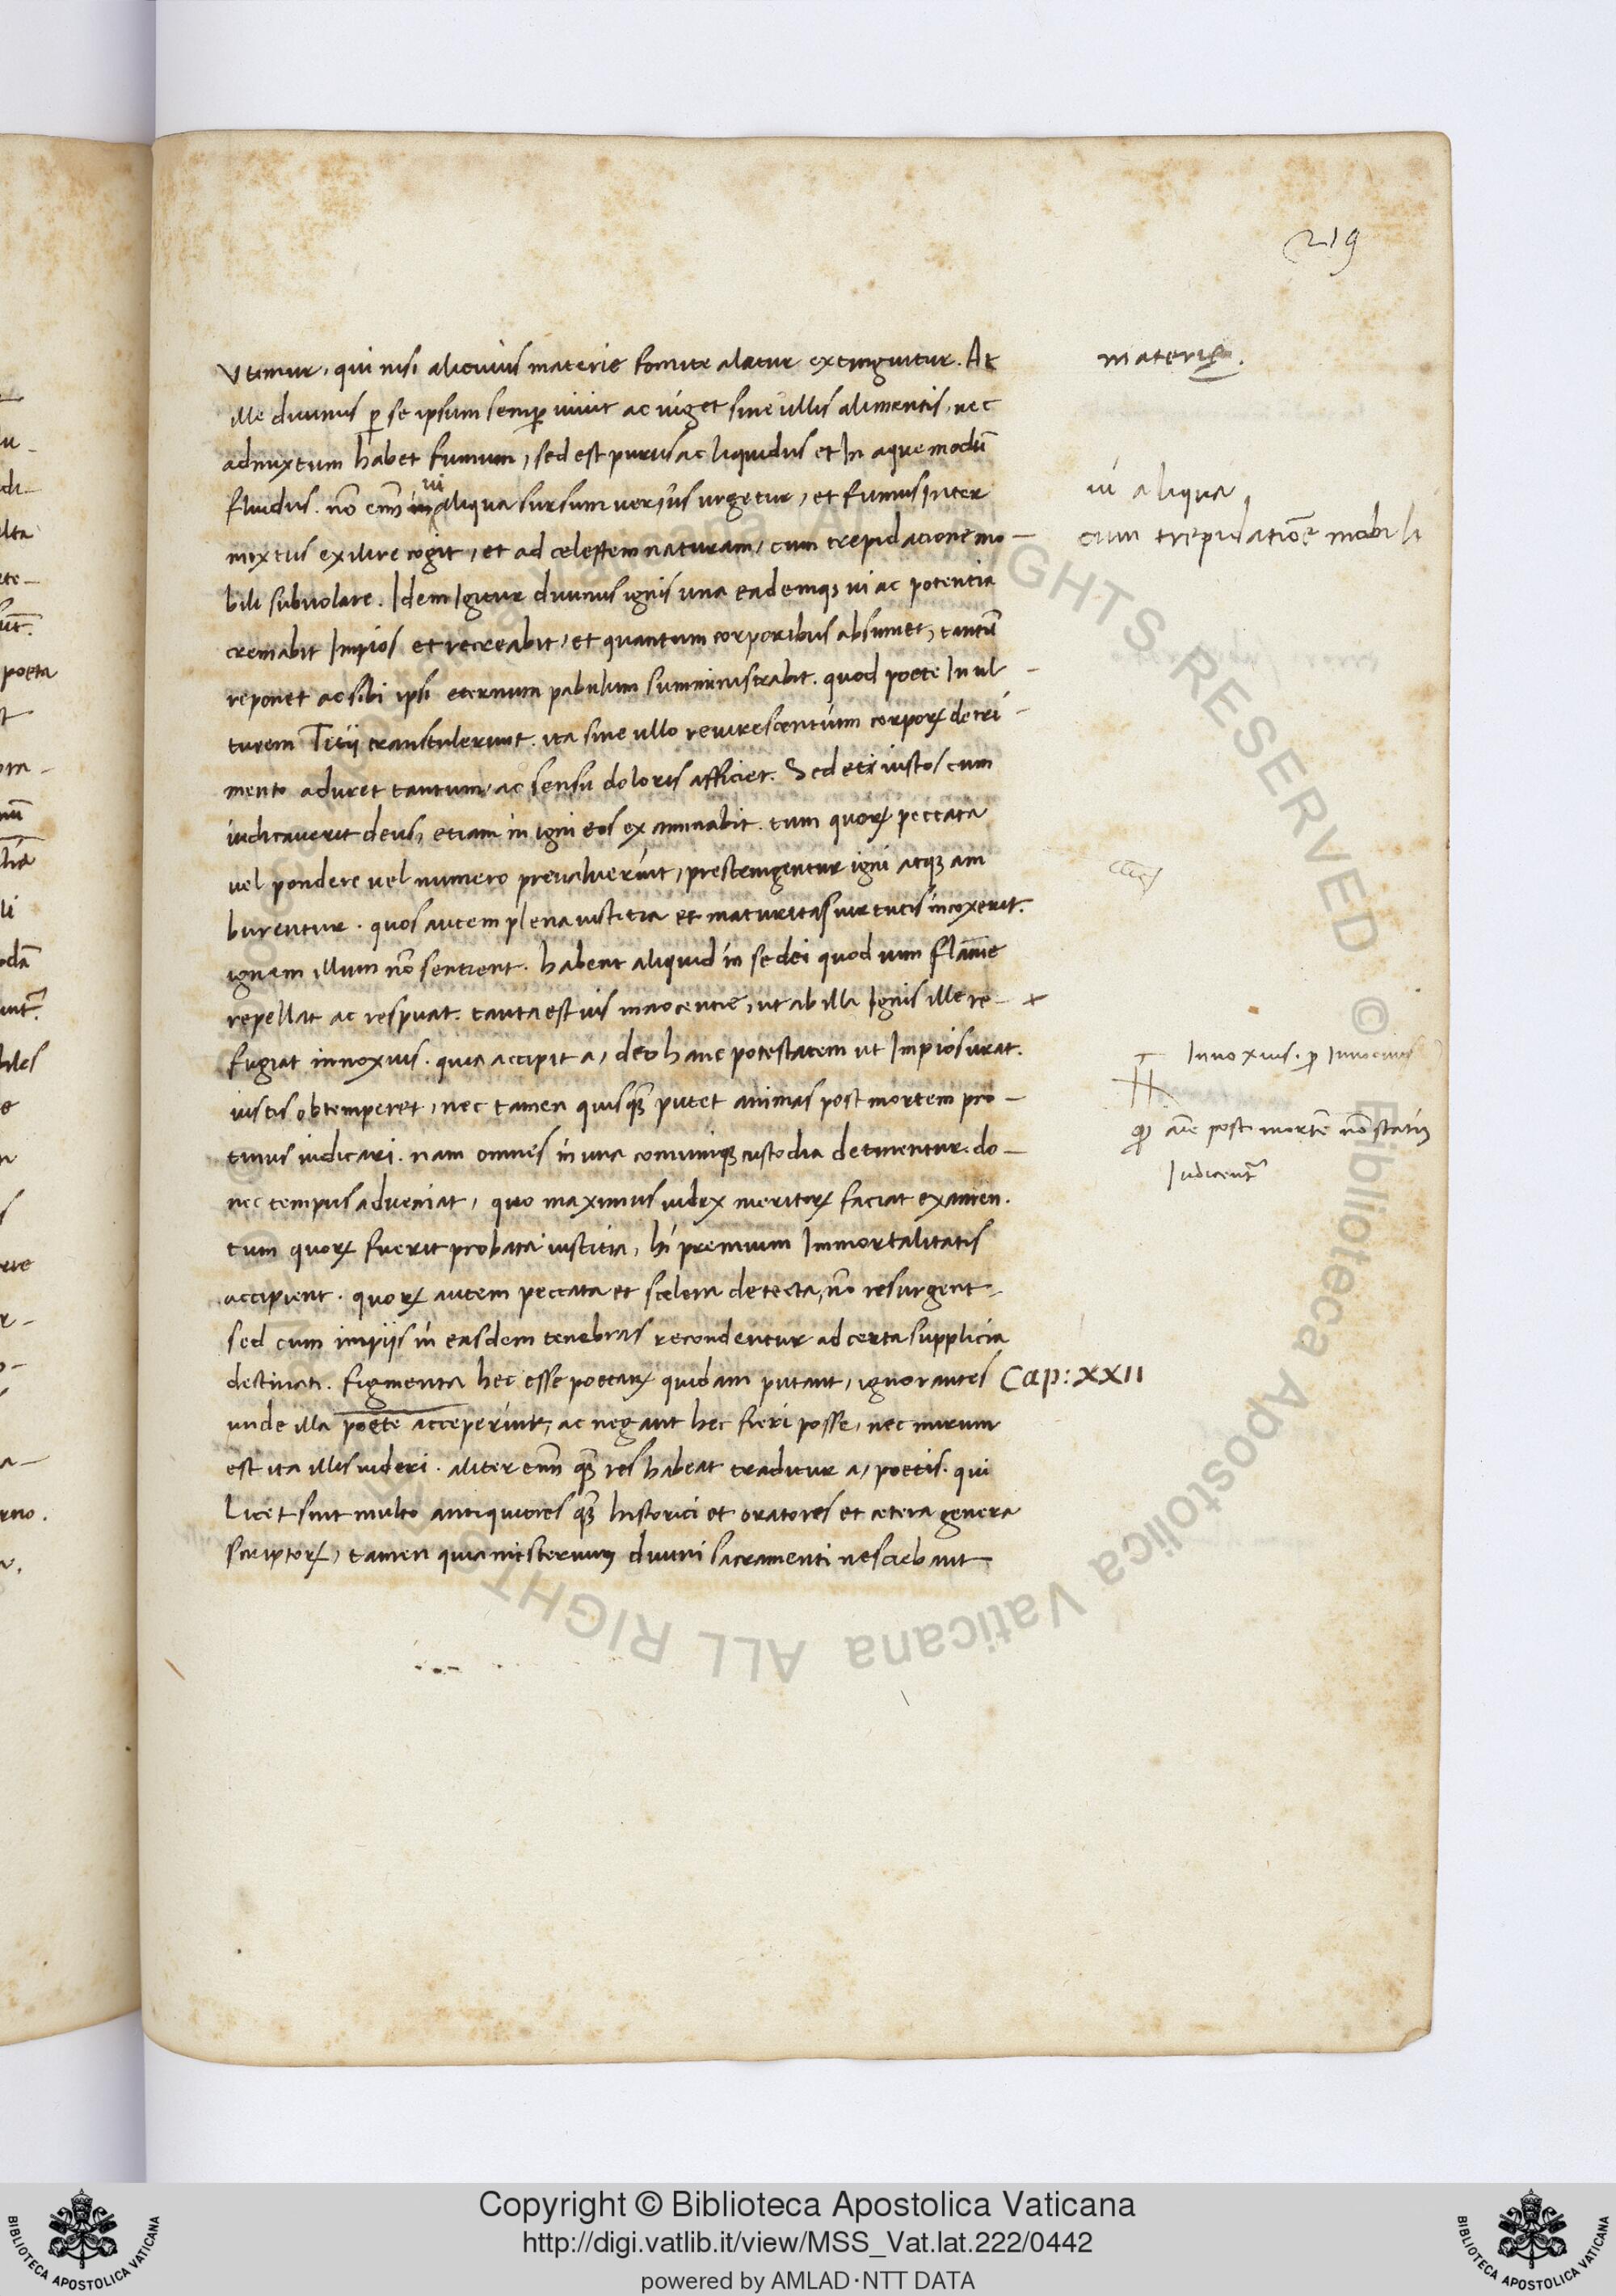 219
Vtimur, qui nisi alicuius materie fomite alatur extinguitur. At
materie.
ille diuinus ꝑ se ipsum semꝑ uiuit ac uiget sine ullis alimentis, nec
admixtum habet fumum, sed est purus ac liquidus et In aque modū
fluidus. nō enī ui aliqua sursum uersus urgetur, et fumus Inter
ui aliqua
mixtus exilire cogit, et ad celestem naturam, cum trepidacione mo-
cum trepidatiōe mobili
bili subuolare. Idem Igitur diuinus ignis una eademqꝫ ui ac potentia
cremabit Impios et recreabit, et quantum corporibus absumet, tantū
reponet ac sibi ipsi eternum pabulum sumministrabit. quod poete In ul-
turem Titii transtulerunt. ita sine ullo reuirescentium corporꝝ detri-
mento aduret tantum, ac sensu doloris afficiet. Sed et iustos cum
iudicauerit deus, etiam in igni eos examinabit. tum quorꝝ peccata
uel pondere uel numero preualuerint, prestringentur igni atqꝫ am
burentur. quos autem plena iustitia et maturitas uirtutis incoxerit.
ignem illum nō sentient. habent aliquid in se dei quod uim flāme
repellat ac respuat. tanta est uis innocentie, ut ab illa Ignis ille re-
fugiat innoxius. quia accipit a, deo hanc potestatem ut Impios urat.
Innoxius. ꝑ Innocuus
iustis obtemperet, nec tamen quisqꝫ putet animas post mortem pro-
ꝙ aīe post mortē nō statiȝ
tinus iudicari. nam omnes in una comuniqꝫ custodia detinentur. do-
Iudicent᷑
nec tempus adueniat, quo maximus iudex meritorꝝ faciat examen.
tum quorꝝ fuerit probata iustitia, hi premium Immortalitatis
accipient. quorꝝ autem peccata et scelera detecta, nō resurgent
sed cum impiis in easdem tenebras recondentur ad certa supplicia
destinati. figmenta hec esse poetarꝝ quidam putant, ignorantes
Cap: XXII
unde illa poete acceperint, ac negant hec fieri posse, nec mirum
est ita illis uideri. aliter enī qꝫ res habeat traditur a, poetis. qui
Licet sint multo antiquiores qꝫ historici et oratores et cetera genera
scriptorꝝ, tamen quia misterium diuini sacramenti nesciebant
© Biblioteca Apostolica Vaticana ALL RIGHTS RESERVED
Copyright © Biblioteca Apostolica Vaticana
http://digi.vatlib.it/view/MSS_Vat.lat.222/0442
powered by AMLAD·NTT DATA
BIBLIOTECA APOSTOLICA VATICANA
BIBLIOTECA APOSTOLICA VATICANA